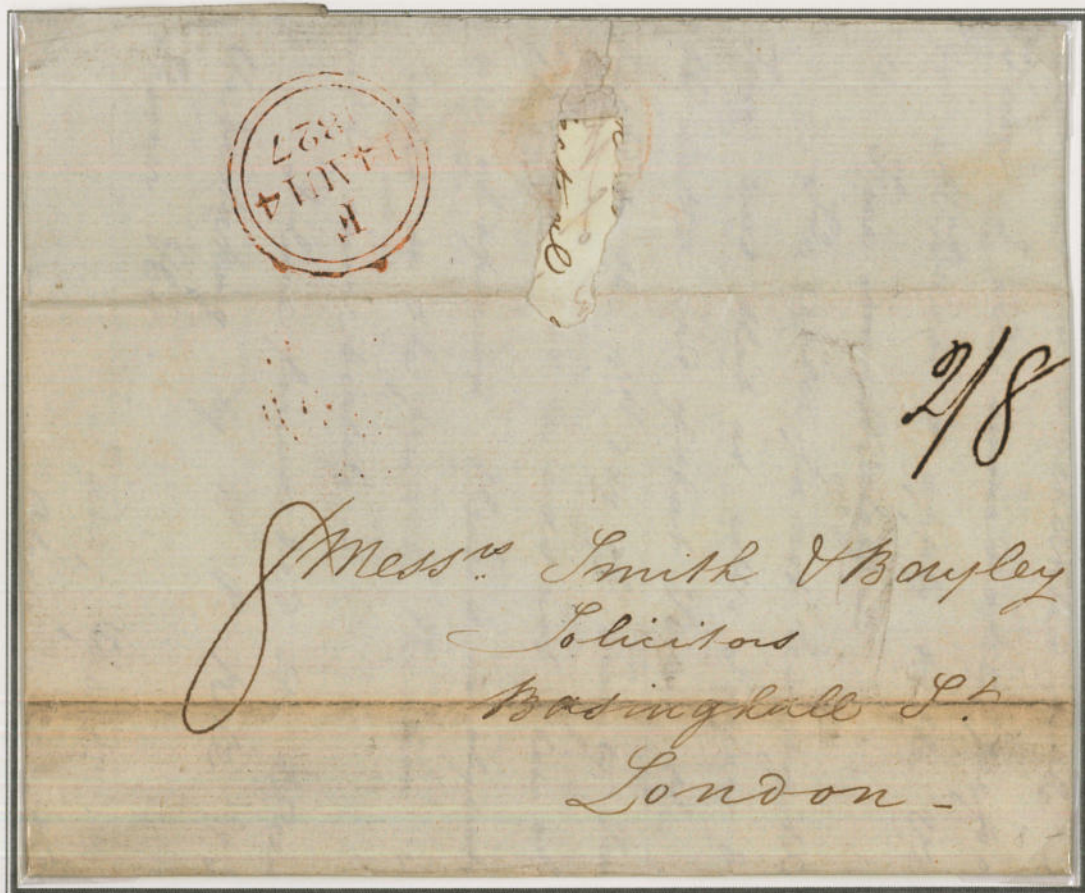 F
14 AU 14
1827
2/8
8
Messrs Smith & Bayley
Solicitors
Basinghall St.
London -